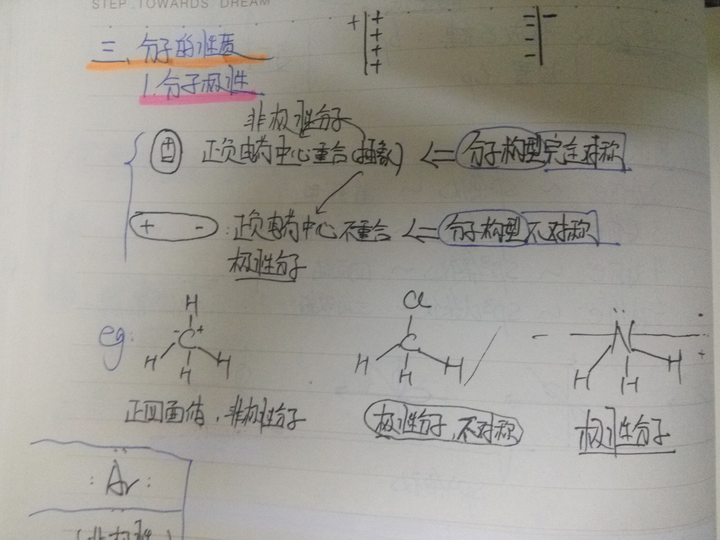 STEP TOWARDS DREAM
三、分子的性质
1.分子极性
+ + + + +
- - - - -
非极性分子
± 正负电荷中心重合(抽象) <= 分子构型完全对称
+ - : 正负电荷中心不重合 <= 分子构型不对称
极性分子
H Cl
eg. - C + C - N -
H H H H H H H H H +
正四面体、非极性分子 极性分子,不对称 极性分子
:Ar:
(非极性)